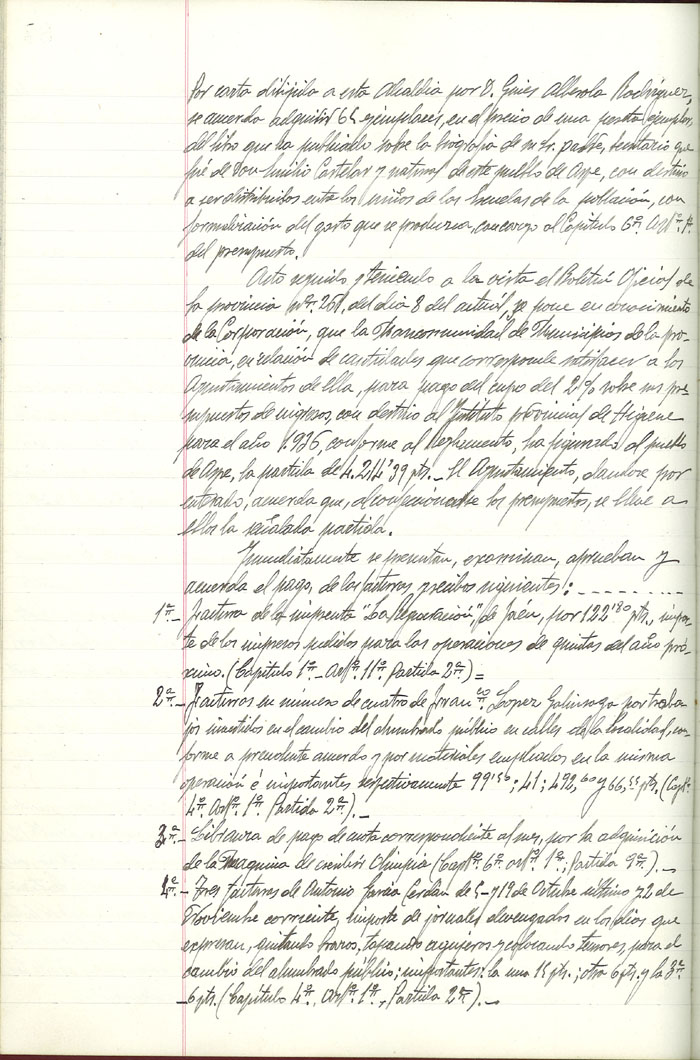 Por carta dirigida a esta Alcaldia por D. Ginés Alberola Rodriguez,
se acuerda adquirir ejemplares, en el precio de una peseta ejemplar,
del libro que ha publicado sobre la biografia de su Sr. padre, secretario que
fué de Don Emilio Castelar y natural de este pueblo de Aspe, con destino
a ser distribuidos entre los niños de las Escuelas de la población, con
formalización del gasto que se produzca, con cargo al Capítulo 6º. Artº. 1º.
del presupuesto.
Acto seguido y teniendo a la vista el Boletin Oficial de
la provincia nº. 251, del dia 8 del actual, se pone en conocimiento
de la Corporación, que la Mancomunidad de Municipios de la pro-
vincia, en relación de cantidades que corresponde satisfacer a los
Ayuntamientos de ella, para pago del cupo del 2% sobre sus pre-
supuestos de ingresos, con destino al Instituto provincial de Higiene
para el año 1.936, conforme al Reglamento, ha figurado al pueblo
de Aspe, la partida de 4.214'39 pts.- El Ayuntamiento, dandose por
enterado, acuerda que, al confeccionarse los presupuestos, se lleve a
ellos la señalada partida.
Inmediatamente se presentan, examinan, aprueban y
acuerda el pago, de las facturas y recibos siguientes: - - - - - - - -
1ª.- Factura de la imprenta "La Regeneración" de Jaén, por 122'80 pts., impor-
te de los impresos pedidos para las operaciones de quintas del año pró-
ximo. (Capítulo 1º.- Artº. 11º. Partida 2ª.) =
2ª.- Facturas en número de cuatro de Juan López Galinsoga por traba-
jos invertidos en el cambio del alumbrado público en calles de la localidad, con-
forme a precedente acuerdo y por materiales empleados en la misma
operación é importantes respectivamente 99'50; 41; 492,60 y 66,55 pts. (Captº.
4º. Artº. 1º. Partida 2ª.).-
3ª.- Libranza de pago de cuota correspondiente al mes, por la adquisición
de la Maquina de escribir Olimpia (Captº. 6º. artº. 1º., Partida 9ª.).-
4ª.- Tres facturas de Antonio Garcia Cerdán de 5 y 19 de Octubre último y 2 de
Noviembre corriente, importe de jornales devengados en los dias que
expresan, quitando brazos, tapando agujeros y colocando tensores, para el
cambio del alumbrado público; importantes: la una 15 pts.; otra 6 pts. y la 3ª.
6 pts. (Capítulo 4º. Artº. 1º., Partida 2ª.).-